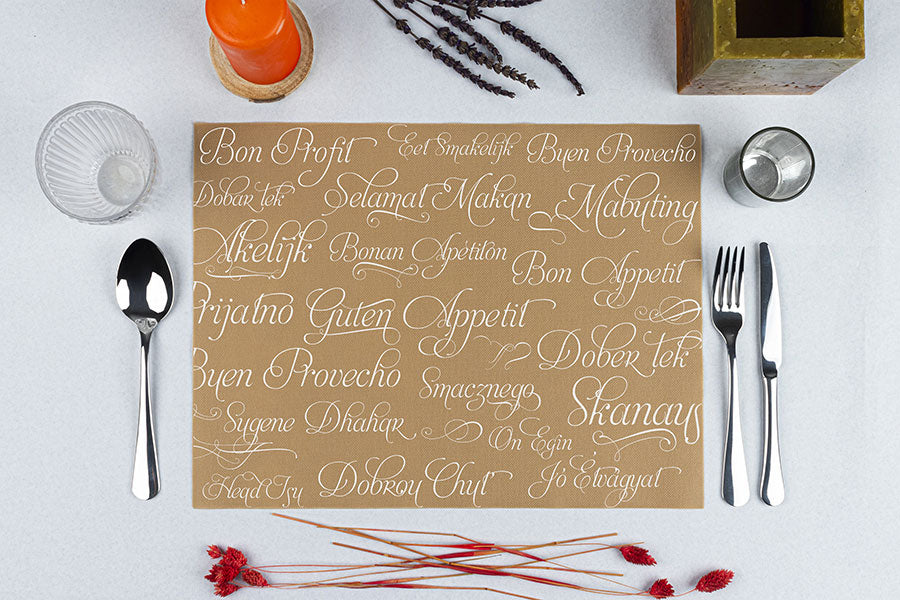 Bon Profit Eet Smakelijk Buen Provecho
Dobar tek Selamat Makan Mabuting
Akelijk Bonan Apétilon Bon Appetit
Prijatno Guten Appetit
Dober tek
Buen Provecho Smacznego
Skanaus
Sygene Dhahar On Egin
Head Isy Dobrou Chuť Jó Étvágyat